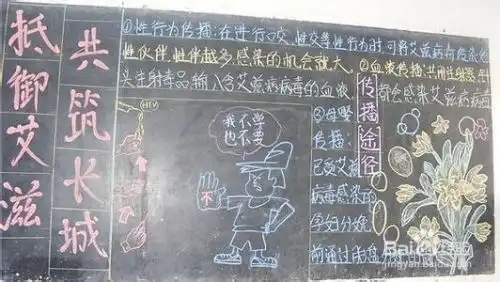 抵御艾滋
共筑长城
①性行为传播:在进行口交,性交等性行为时,可将艾滋病
性伙伴,性伴越多,感染的机会就大。②血液传播:共用
头注射毒品,输入含艾滋病病毒的血液,都会感染艾滋病病
传播途径
我不学
也不要
不
③母婴
传播:
已受艾滋
病毒感染的
孕妇分娩
前通过胎盘
Baidu经验
jingyan.baidu.com